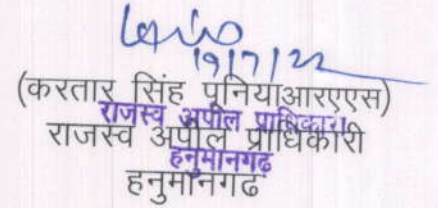 19/7/22
(करतार सिंह पुनियाआरएएस)
राजस्व अपील प्राधिकारी
राजस्व अपील प्राधिकारी
हनुमानगढ
हनुमानगढ